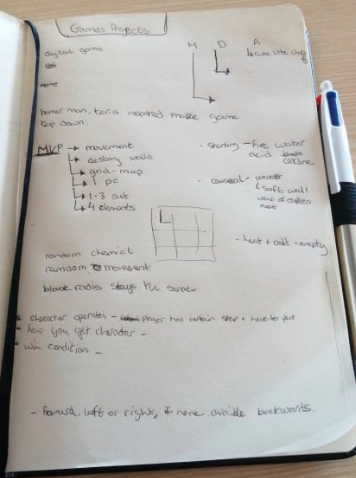 Games Projects
digital game
M D A
bomer man, teris inspired maze game
top down.
MVP → movement
destory walls
grid-map
1 pc
1-3 sut
4 elements
- starting - fire water
acid
- causeal - water
- heat + cold - empty
random chemict
random movement
blast radios stays the same
character operates - player has certain step + have to put
how you get character -
win condition -
- forward, left or rights, if none avaible backwards.